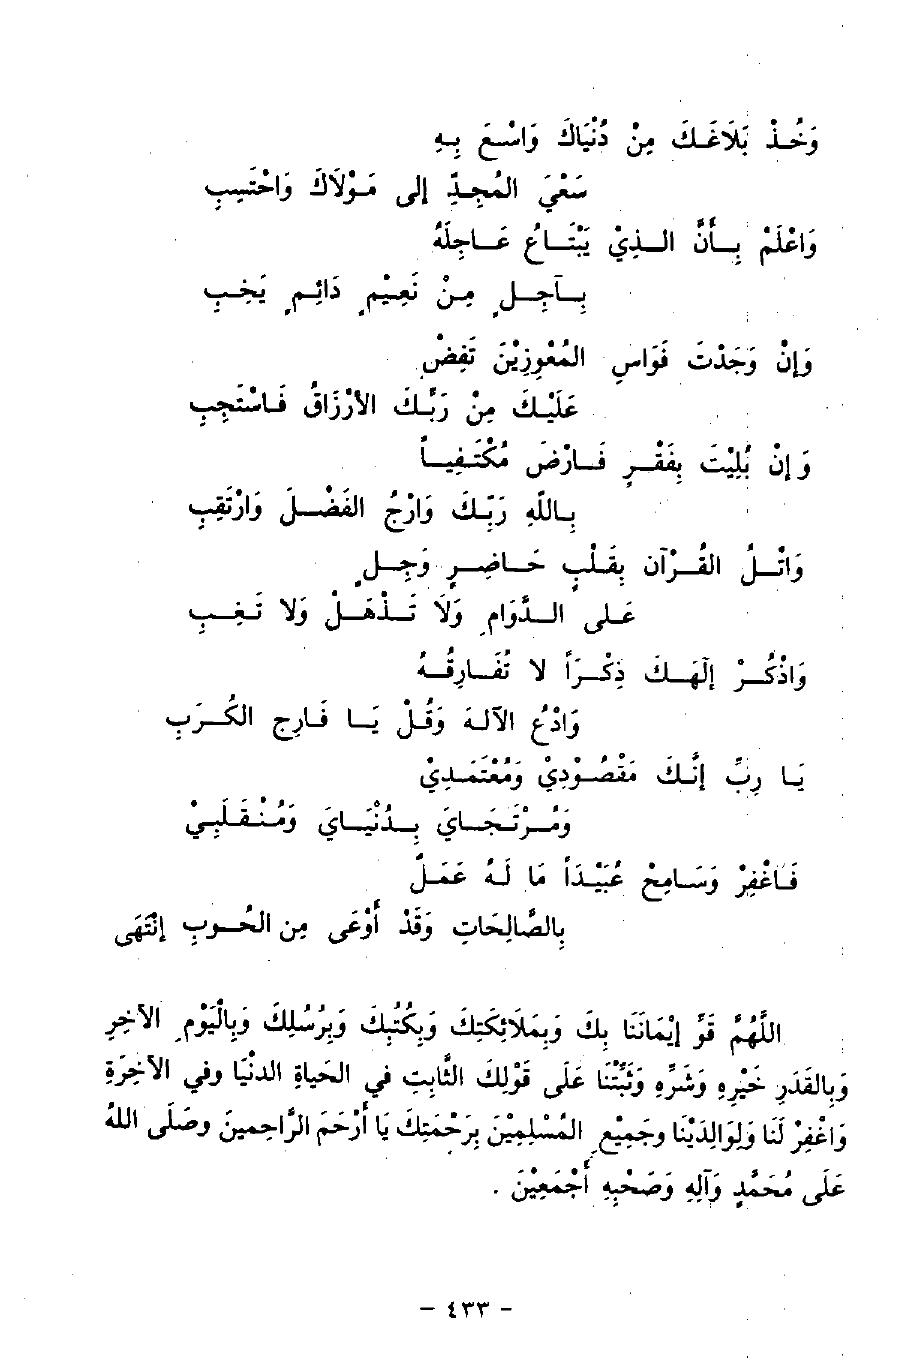 وَخُـذْ بَلَاغَـكَ مِنْ دُنْيَاكَ وَاسْـعَ بِـهِ
سَعْيَ المُجِدِّ إلى مَـوْلَاكَ وَاحْتَسِبِ
وَاعْلَمْ بِـأَنَّ الـذِيْ يَبْتَـاعُ عَـاجِلَهُ
بِـآجِـلٍ مِـنْ نَعِيْمٍ دَائِـمٍ يَخِـبِ
وَإنْ وَجَدْتَ فَوَاسِ المُعْوِزِيْنَ تَفِضْ
عَلَيْـكَ مِنْ رَبِّـكَ الأرْزَاقُ فَـاسْتَجِبِ
وَإنْ بُلِيْتَ بِفَقْـرٍ فَـارْضَ مُكْتَـفِيـاً
بِـاللهِ رَبِّـكَ وَارْجُ الفَضْـلَ وَارْتَقِبِ
وَاتْـلُ القُـرْآنَ بِقَـلْبٍ حَـاضِـرٍ وَجِـلٍ
عَـلى الـدَّوَامِ وَلَا تَـذْهَـلْ وَلا تَـغِـبِ
وَاذْكُـرْ إلٰهَـكَ ذِكْـرَاً لا تُفَـارِقُـهُ
وَادْعُ الآلـهَ وَقُـلْ يَـا فَـارِجِ الكُـرَبِ
يَـا رِبِّ إنَّـكَ مَقْصُـوْدِيْ وَمُعْتَمَـدِيْ
وَمُـرْتَـجَـايَ بِـدُنْيَـايَ وَمُـنْـقَـلَبِيْ
فَـاغْفِرْ وَسَـامِحْ عُبَيْـدَاً مَا لَـهُ عَمَـلٌ
بِالصَّالِحَاتِ وَقَدْ أَوْعَى مِن الحُـوبِ إنْتَهَى
اللَّهُمَّ قَوِّ إيْمَانَنَا بِكَ وَبِمَلَائِكَتِكَ وَبِكُتُبِكَ وَبِرُسُلِكَ وَبِالْيَوْمِ الآخِرِ
وَبِالقَدَرِ خَيْرِهِ وَشَرِّهِ وَثَبِّتْنَا عَلَى قَوْلِكَ الثَّابِتِ في الحَيَاةِ الدنْيَا وفي الآخِرَةِ
وَاغْفِرْ لَنَا وَلِوَالِدَيْنَا وجَمِيْعِ المُسْلِمِيْنَ بِرَحْمَتِكَ يَا أَرْحَمَ الرَّاحِمينَ وصَلَى اللهُ
عَلَى مُحَمَّدٍ وَآلِهِ وَصَحْبِهِ أَجْمَعِيْنَ .
- ٤٣٣ -